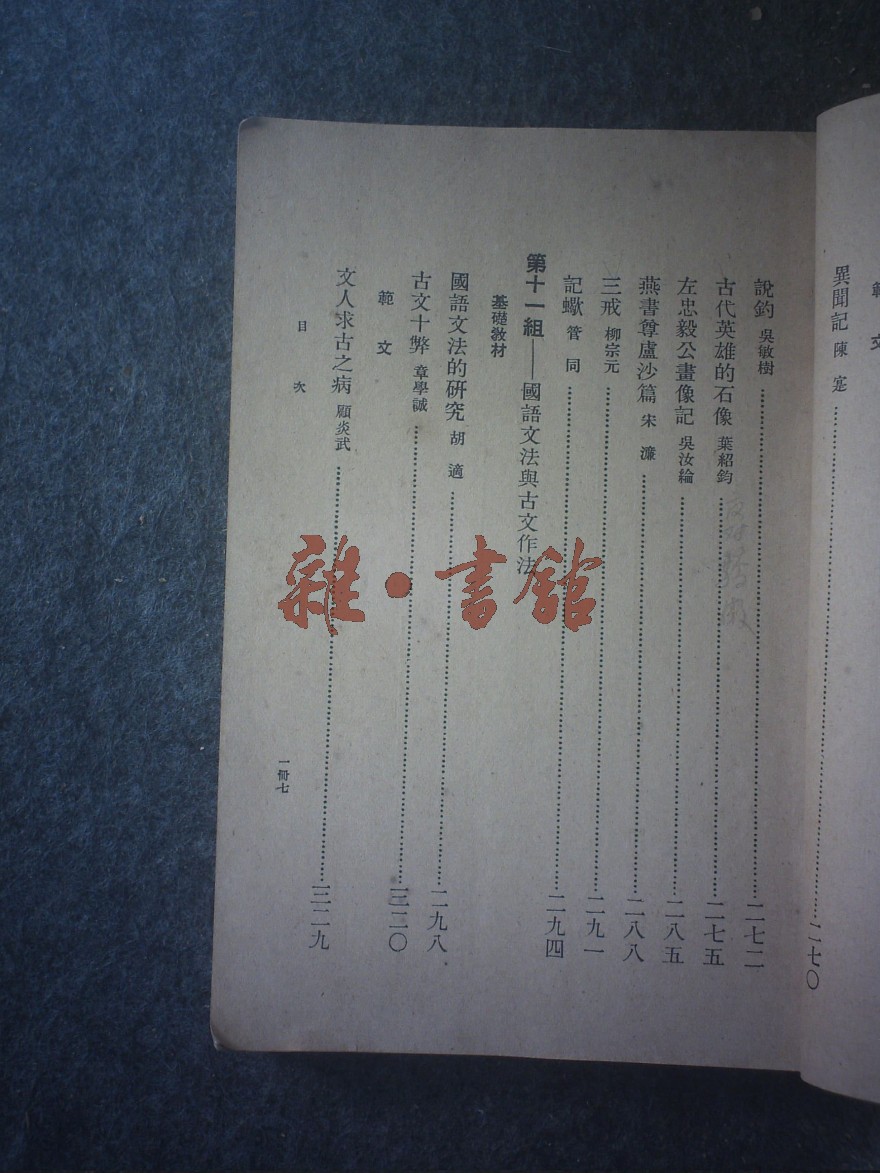 範文
異聞記 陳寔 二七〇
說釣 吳敏樹 二七二
古代英雄的石像 葉紹鈞 二七五
左忠毅公畫像記 吳汝綸 二八五
燕書尊盧沙篇 宋濂 二八八
三戒 柳宗元 二九一
記蠍 管同 二九四
第十一組——國語文法與古文作法
基礎教材
國語文法的研究 胡適 二九八
古文十弊 章學誠 三二〇
範文
文人求古之病 顧炎武 三二九
目次
一冊七
雜·書館